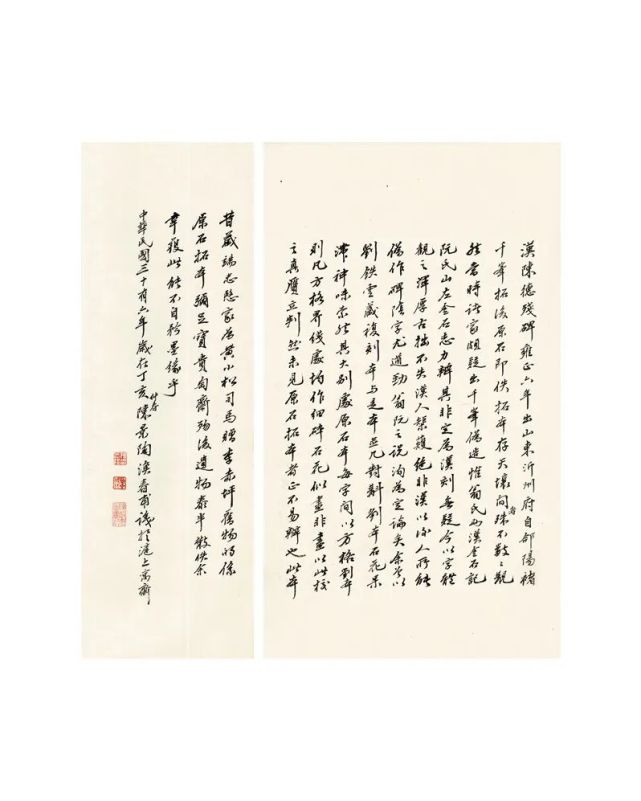 漢陳德殘碑雍正六年出山東沂州府自郃陽褚
千峯拓後原石即佚拓本存天壤間者殊不數〻覯
然當時諸家頗疑出千峯偽造惟翁氏兩漢金石記
阮氏山左金石志力辯其非定為漢刻無疑今以字體
觀之渾厚古拙不失漢人榘矱絕非漢以後人所能
偽作碑陰字尤遒勁翁阮之說洵為定論矣余嘗以
劉鐵雲藏複刻本与是本並几對斠劉本石花呆
滯神味索然其大別處原石本每字間以方格劉本
則凡方格界綫處均作細碎石花似畫非畫以此校
之真贋立判然未見原石拓本者正不易辯也此本
昔藏端忠愍家為黃小松司馬贈李赤坪舊物的係
原石拓本彌足寶貴匋齋歿後遺物泰半散佚余
幸獲此能不自矜墨緣乎
中華民國三十有六年歲在丁亥仲春陳景陶春甫識於滬上寓齋